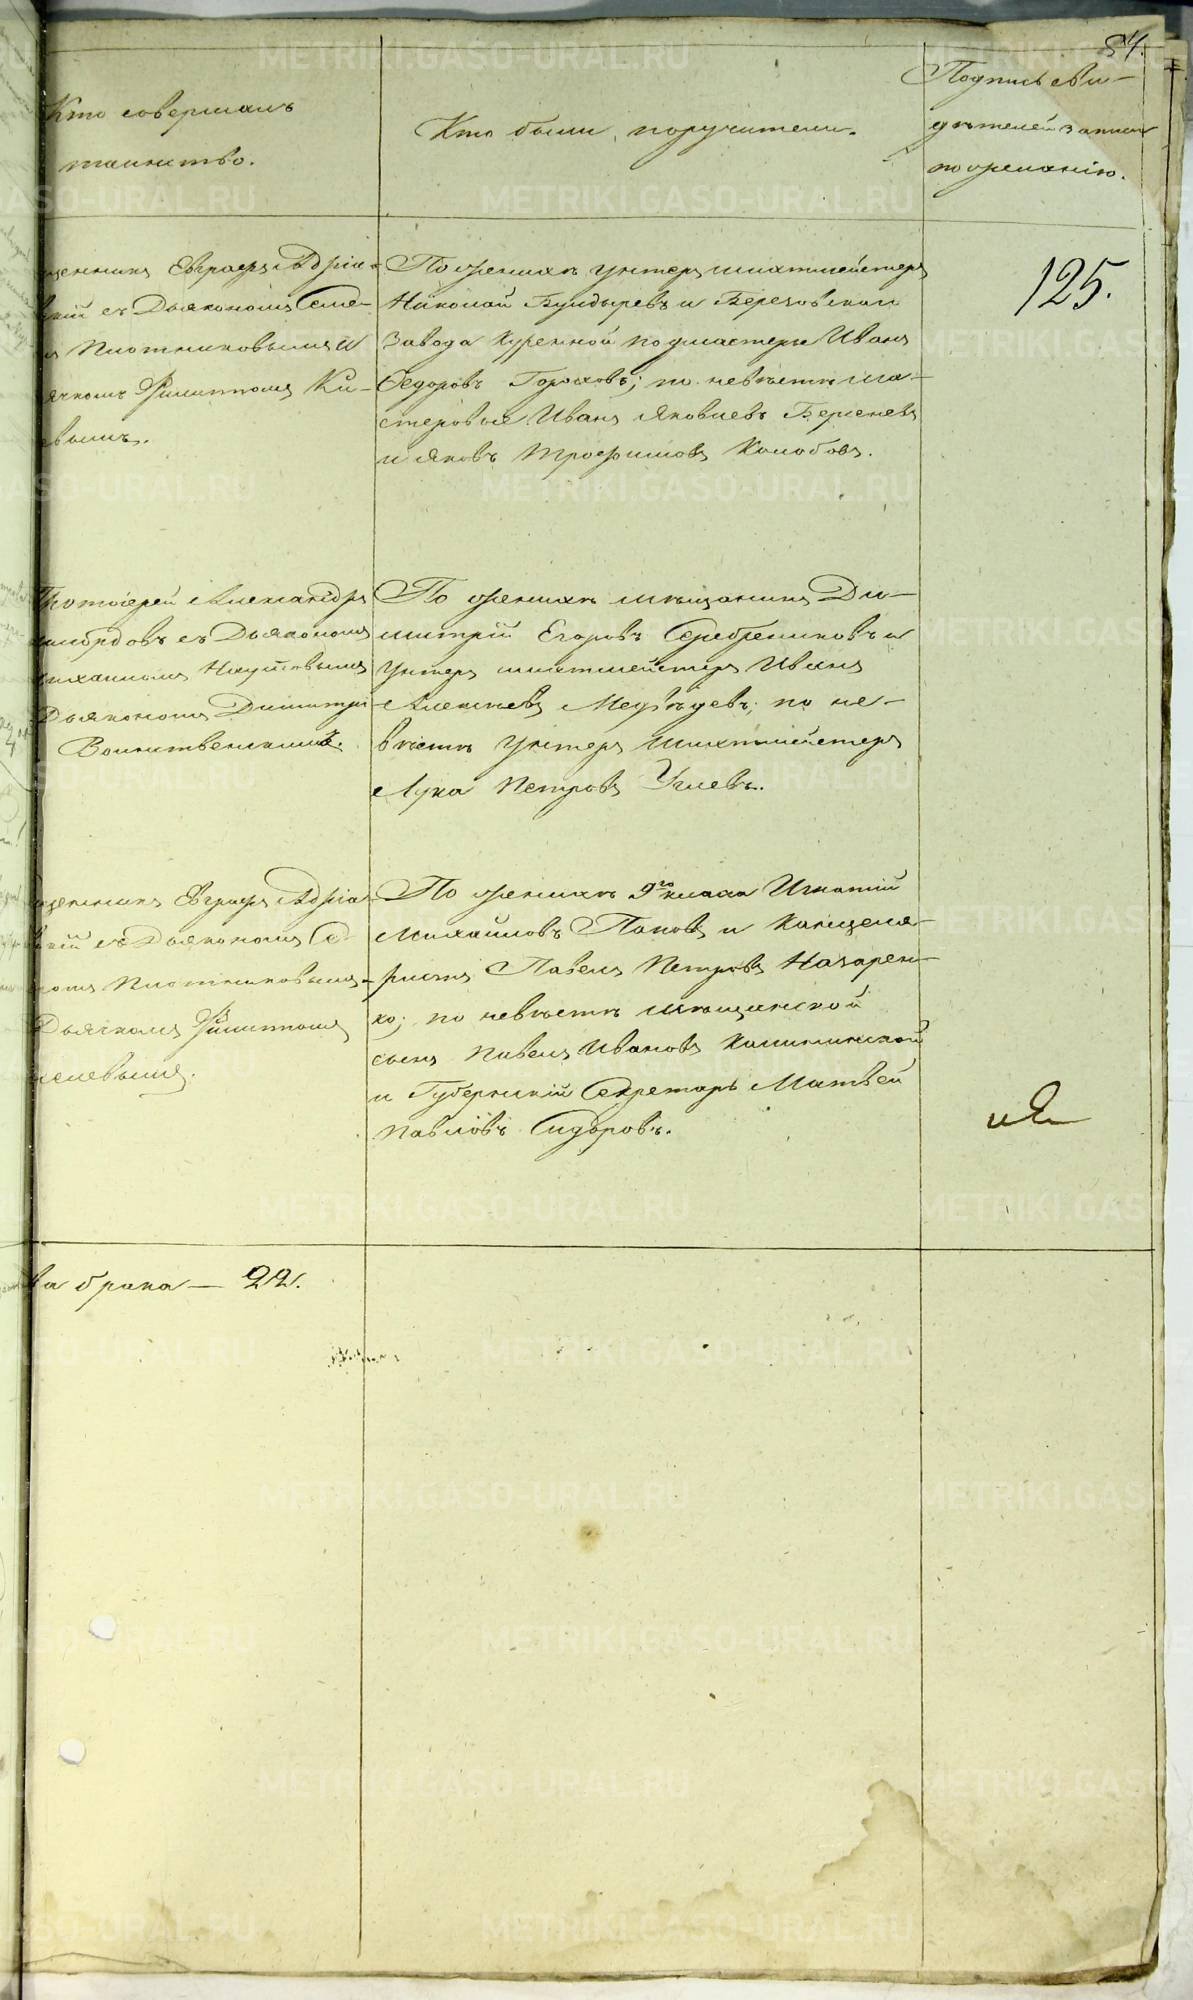 54.
Кто совершалъ
таинство.
Кто были поручители.
Подпись сви-
дѣтелей записи
по желанію.
125.
щенникъ Евграфъ Адріа-
скій съ Діакономъ Симе-
Плотниковымъ и
ячкомъ Филиппомъ Ки-
евымъ.
По женихѣ унтеръ шихтмейстеръ
Николай Бундыревъ и Березовскаго
Завода Куренной подмастерье Иванъ
Ѳедоровъ Гороховъ; по невѣстѣ ма-
стеровые Иванъ Яковлевъ Берсеневъ
и Яковъ Трофимовъ Колобовъ.
Протоіерей Александръ
съ Діакономъ
ихаиломъ Наумовымъ
Дьякономъ Димитрі
Воинственскимъ.
По женихѣ мѣщанинъ Ди-
митрій Егоровъ Серебренниковъ и
Унтеръ шихтмейстеръ Иванъ
Алексѣевъ Медвѣдевъ; по не-
вѣстѣ Унтеръ Шихтмейстеръ
Лука Петровъ Углевъ.
щенникъ Евграфъ Адріа-
скій съ Діакономъ Се-
Плотниковымъ
Дьячкомъ Филиппомъ
селевымъ.
По женихѣ 9го класса Игнатій
Михайловъ Поповъ и Канцеля-
ристъ Павелъ Петровъ Назарен-
ко; по невѣстѣ мѣщанской
сынъ Павелъ Ивановъ Калининской
и Губернскій Секретарь Матвей
Павловъ Сидоровъ.
ва брака — 22.
METRIKI.GASO-URAL.RU